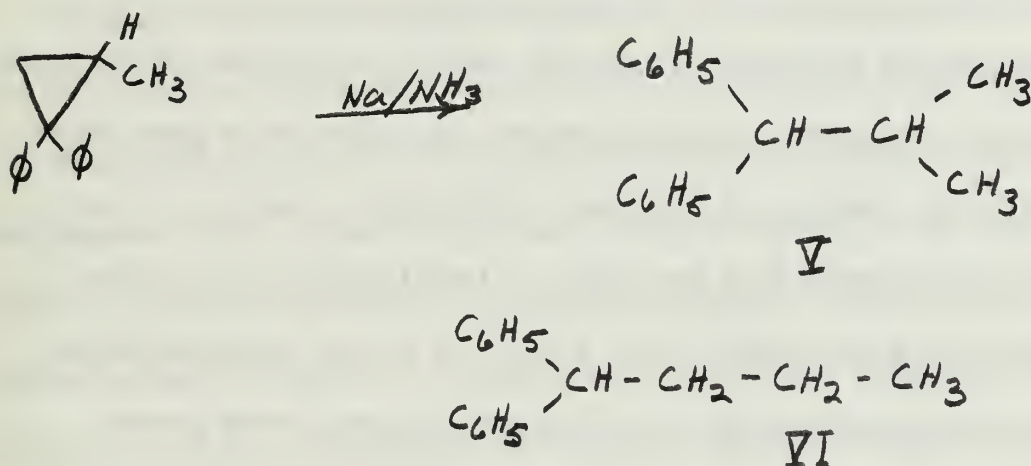 H
CH3
φ φ
Na/NH3
C6H5
C6H5
CH - CH
CH3
CH3
V
C6H5
C6H5
CH - CH2 - CH2 - CH3
VI